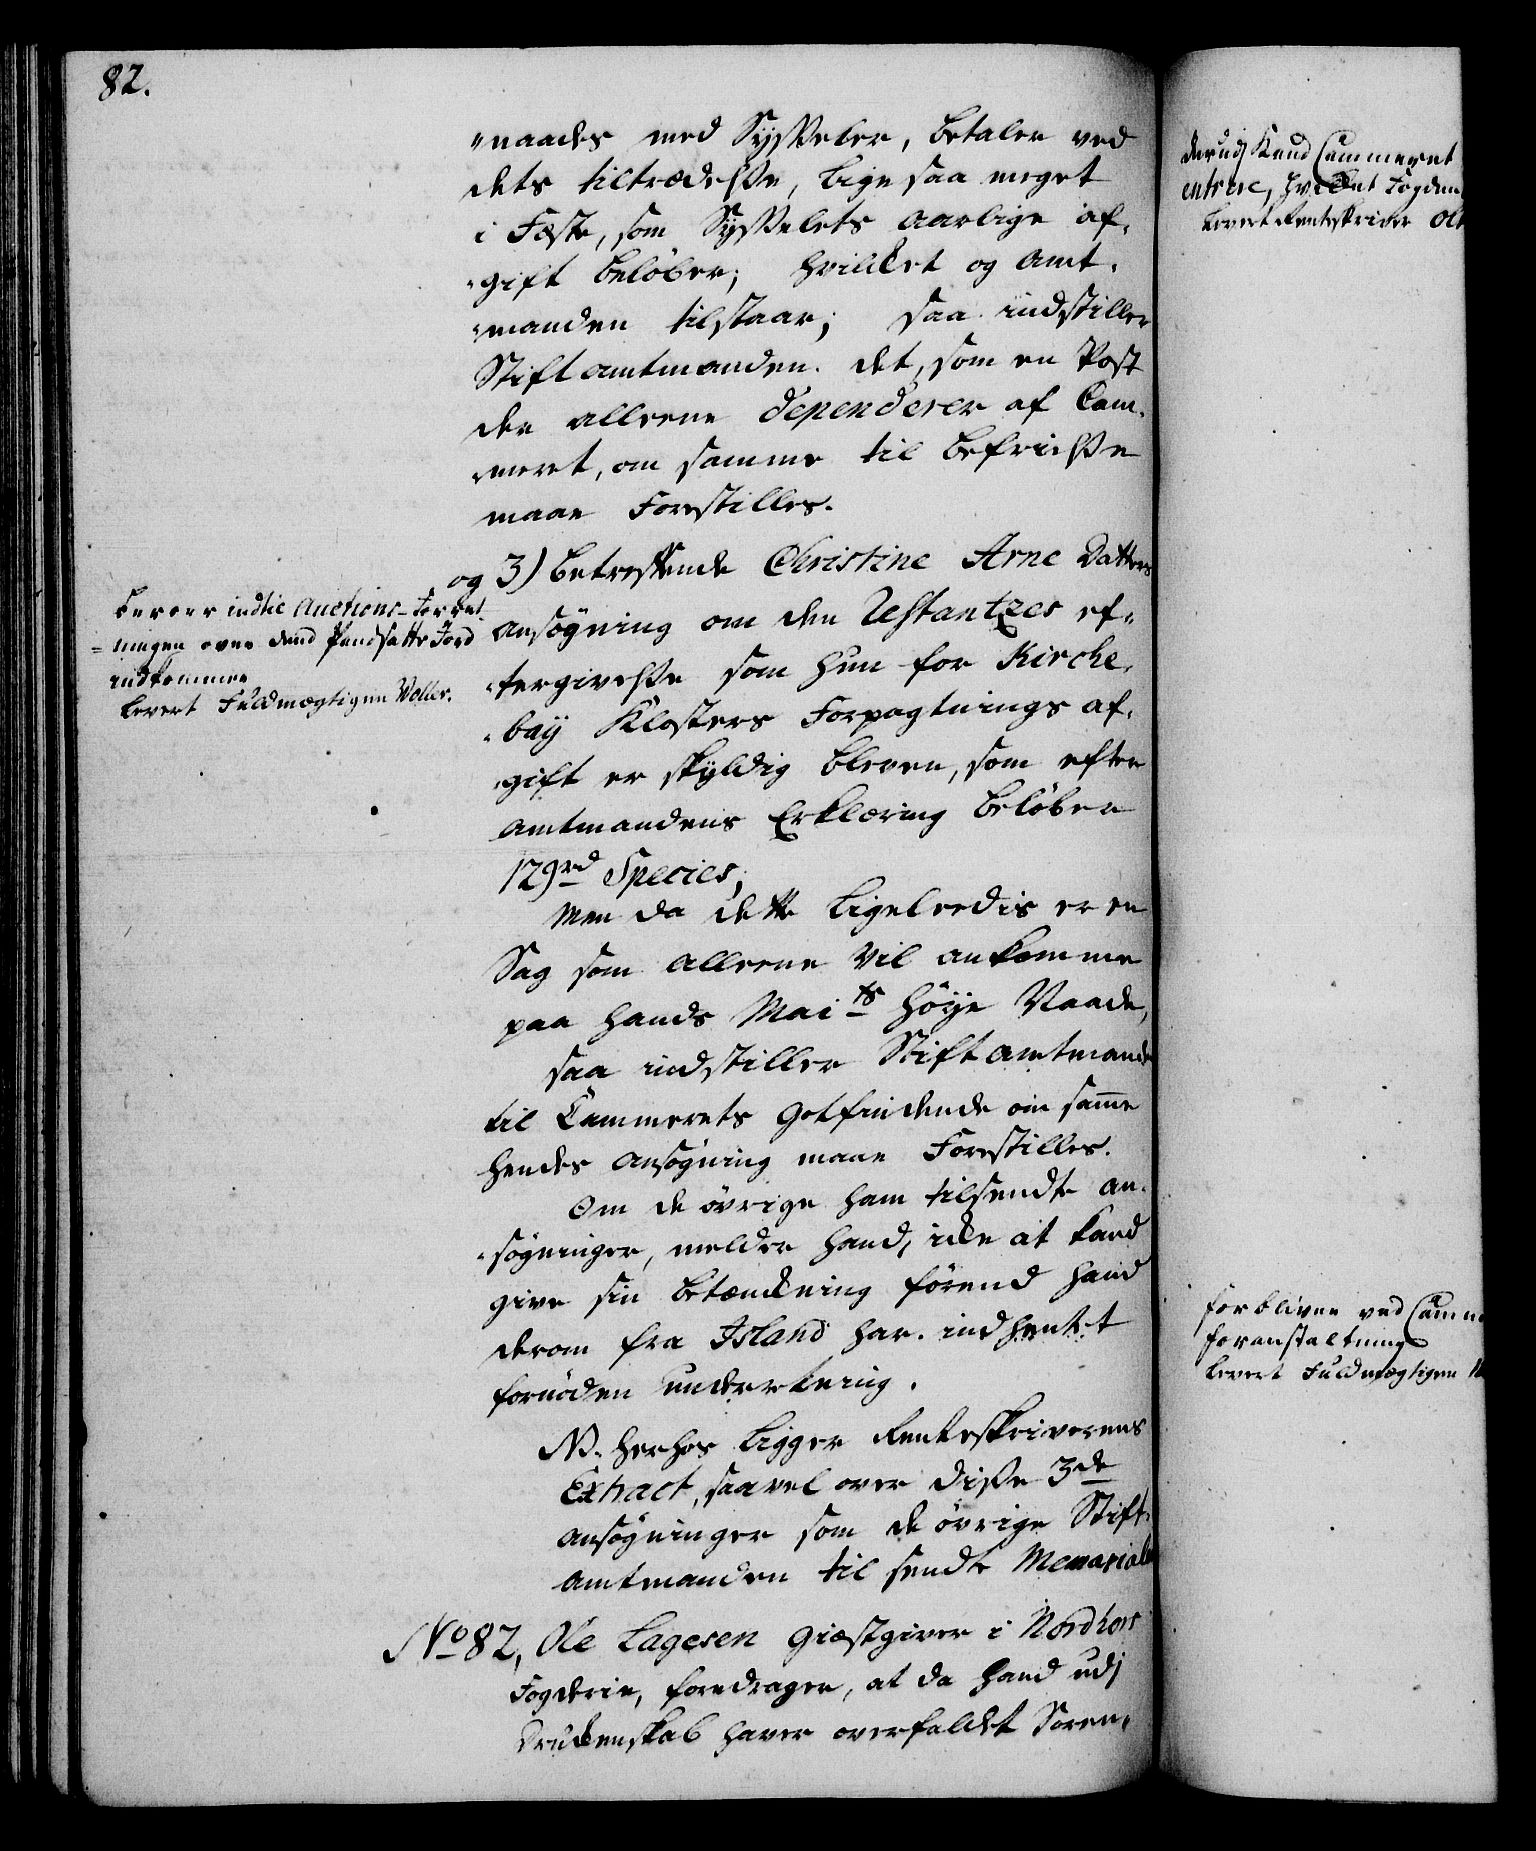 82.
"naades med Sysseler, betaler ved
dets tiltrædelse, lige saa meget
i Fæste, som Sysselets aarlige af-
"gift beløber; hvilket og Amt-
"manden tilstaar; saa indstiller
Stiftamtmanden det, som en Post
der alleene dependerer af Cam-
"meret, om samme til befrielse
maae Forestilles.
og 3) betreffende Christine Arne Datters
ansøgning om den Restantzes ef-
"tergivelse som hun for Kirche-
"bay Klosters Forpagtnings af-
"gift er skyldig bleven, som efter
Amtmandens Erklæring beløber
129 rd Species;
Men da dette ligeleedis er en
Sag som alleene vil ankomme
paa Hands Mai ts høye Naade,
saa indstiller Stiftamtmand
til Cammerets Gotfindende om samme
hendes ansøgning maae Forestilles.
Om de øvrige ham tilsendte an-
"søgninger, melder hand, icke at kand
give sin betænckning førend hand
derom fra Island har indhentet
fornøden underretning.
NB. herhos ligger Renteskriverens
Extract, saavel over disse 3de
ansøgninger som de øvrige Stift-
amtmanden til sendte Memorialer
No 82, Ole Lagesen Giæstgiver i Nordhors
Fogderie, foredrager, at da hand udj
Druckenskab haver overfaldet Soren-
beroer indtil Auctions-Forret-
=ningen over dend Pandsatte Jord
indkommer
levert Fuldmægtigen Voller.
derudj kand Cammeret
entrere, hvilket Fogden
levert Renteskriver Ol
forbliver ved Camme
foranstaltning
levert Fuldmægtigen